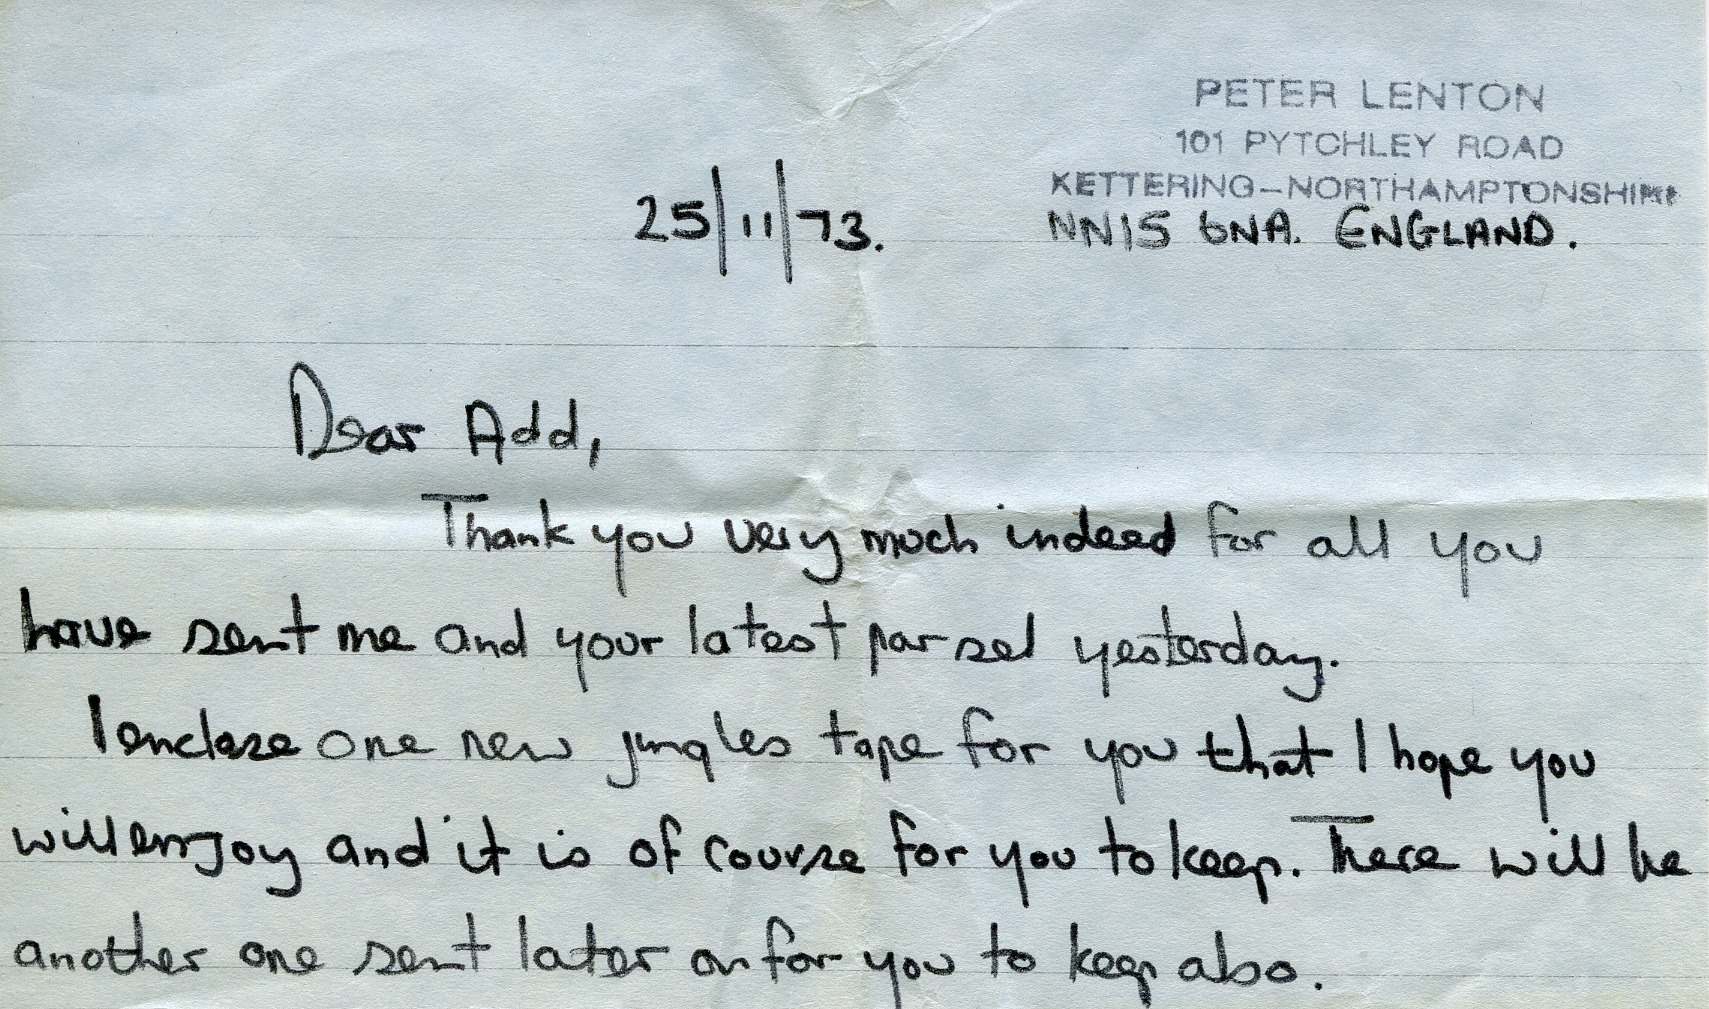 PETER LENTON
101 PYTCHLEY ROAD
KETTERING-NORTHAMPTONSHIRE
25/11/73.
NN15 6NA. ENGLAND.
Dear Add,
Thank you very much indeed for all you
have sent me and your latest parsel yesterday.
I enclose one new jingles tape for you that I hope you
will enjoy and it is of course for you to keep. There will be
another one sent later on for you to keep also.